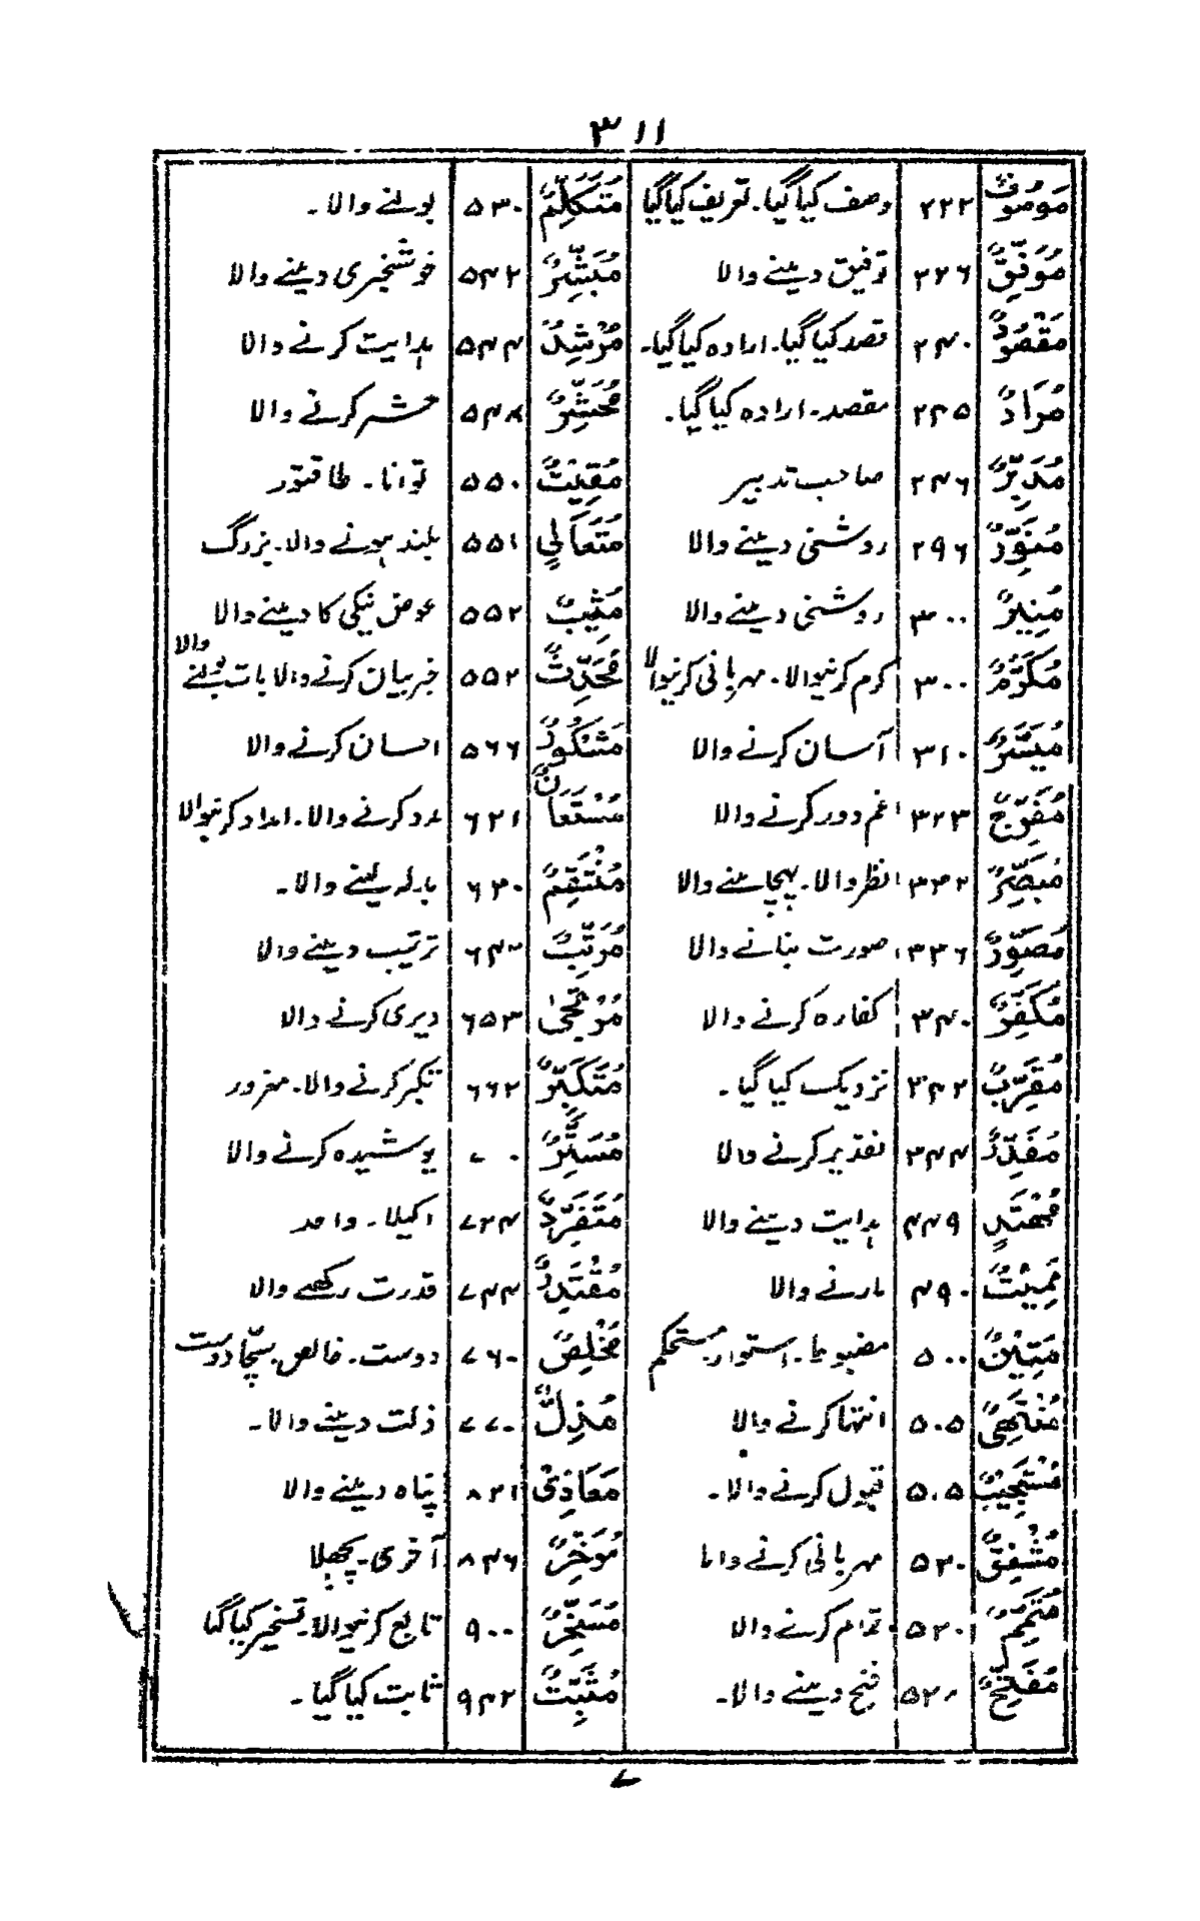 ۳۱۱
مَوصُوفٌ ۲۲۲ وصف کیا گیا۔ تعریف کیا گیا مُتَکَلِّمٌ ۵۳۰ بولنے والا۔
مُوَفِّقٌ ۲۲۶ توفیق دینے والا مُبَشِّرٌ ۵۴۲ خوشخبری دینے والا
مَقْصُودٌ ۲۴۰ قصد کیا گیا۔ ارادہ کیا گیا۔ مُرْشِدٌ ۵۴۴ ہدایت کرنے والا
مُرَادٌ ۲۴۵ مقصد۔ ارادہ کیا گیا۔ مُحَشِّرٌ ۵۴۸ حشر کرنے والا
مُدَبِّرٌ ۲۴۶ صاحب تدبیر مُقِیْتٌ ۵۵۰ توانا۔ طاقتور
مُنَوِّرٌ ۲۹۶ روشنی دینے والا مُتَعَالِیٍ ۵۵۱ بلند ہونے والا۔ بزرگ
مُنِیرٌ ۳۰۰ روشنی دینے والا مُثِیبٌ ۵۵۲ عوض نیکی کا دینے والا
مُکَرِّمٌ ۳۰۰ کرم کرنیوالا۔ مہربانی کرنیوالا مُحَدِّثٌ ۵۵۲ خبر بیان کرنے والا بات بولنے والا
مُیَسِّرٌ ۳۱۰ آسان کرنے والا مَشْکُورٌ ۵۶۶ احسان کرنے والا
مُفَرِّجٌ ۳۲۳ غم دور کرنے والا مُسْتَعَانٌ ۶۲۱ مدد کرنے والا۔ امداد کرنیوالا
مُبَصِّرٌ ۳۳۲ نظر والا۔ پہچاننے والا مُنْتَقِمٌ ۶۳۰ بدلہ لینے والا۔
مُصَوِّرٌ ۳۳۶ صورت بنانے والا مُرَتِّبٌ ۶۴۲ ترتیب دینے والا
مُکَفِّرٌ ۳۴۰ کفارہ کرنے والا ۶۵۳ دیری کرنے والا
مُقَرِّبٌ ۳۴۲ نزدیک کیا گیا۔ مُتَکَبِّرٌ ۶۶۲ تکبر کرنے والا۔ مغرور
مُقَدِّرٌ ۳۴۴ تقدیر کرنے والا مُسَتِّرٌ ۷۰۰ پوشیدہ کرنے والا
مُهْتَدٍ ۴۴۹ ہدایت دینے والا مُتَفَرِّدٌ ۷۲۴ اکیلا۔ واحد
مُمِیْتٌ ۴۹۰ مارنے والا مُقْتَدِرٌ ۷۴۴ قدرت رکھنے والا
مَتِیْنٌ ۵۰۰ مضبوط۔ استوار مستحکم مُخْلِصٌ ۷۶۰ دوست۔ خالص۔ سچّا دوست
مُنْتَهِیٌ ۵۰۵ انتہا کرنے والا مُذِلٌّ ۷۷۰ ذلت دینے والا۔
مُسْتَجِیْبٌ ۵۰۵ قبول کرنے والا۔ مَعَاذِیْ ۸۲۱ پناہ دینے والا
مُشْفِقٌ ۵۲۰ مہربانی کرنے والا مُوَخِّرٌ ۸۴۶ آخری۔ پچھلا
مُتَمِّمٌ ۵۲۰ تمام کرنے والا مُسَخِّرٌ ۹۰۰ تابع کرنیوالا۔ تسخیر کیا گیا
مُفَتِّحٌ ۵۲۸ فتح دینے والا۔ مُثَبِّتٌ ۹۴۲ ثابت کیا گیا۔
۷